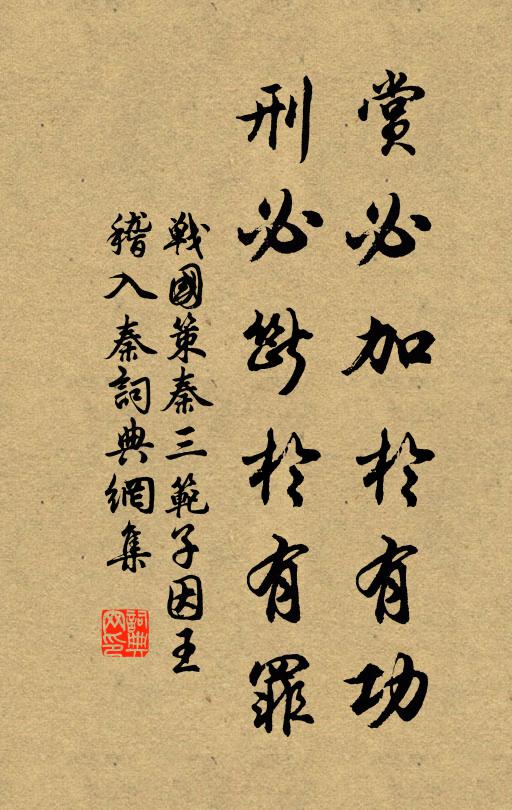 賞必加於有功
刑必斷於有罪
戰國策秦三範子因王
稽入秦詞典網集
詞典网印